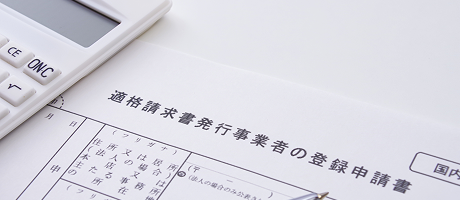 CE
ONC
√
適格請求書発行事業者の登録申請書
国内
月 日
申
(フリガナ)
住所又は居所
(法人の場合)
本店又は
主たる事務所
の所在地
(〒 － )
(法人の場合のみ公表され
(フリガナ)